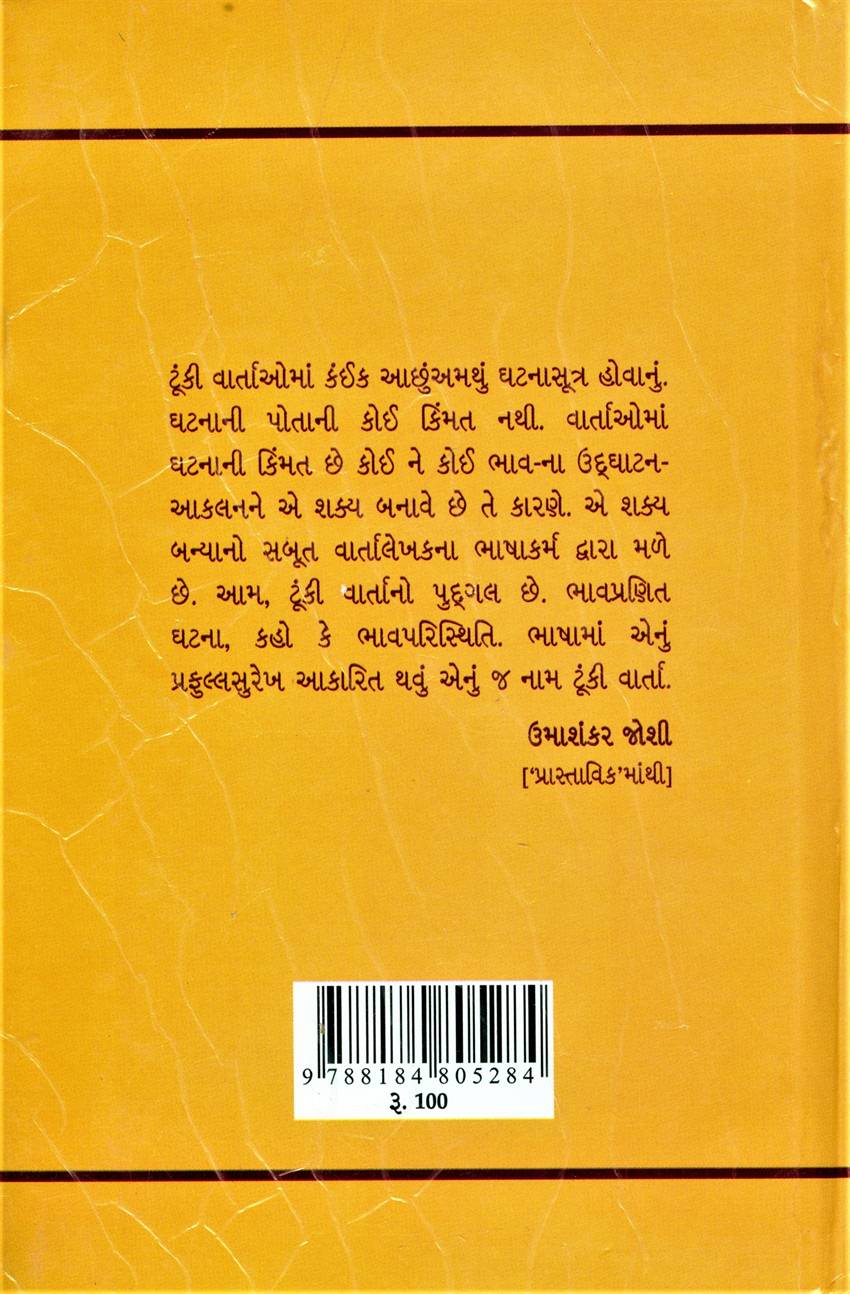 ટૂંકી વાર્તાઓમાં કંઈક આછુંઅમથું ઘટનાસૂત્ર હોવાનું.
ઘટનાની પોતાની કોઈ કિંમત નથી. વાર્તાઓમાં
ઘટનાની કિંમત છે કોઈ ને કોઈ ભાવ-ના ઉદ્‌ઘાટન-
આકલનને એ શક્ય બનાવે છે તે કારણે. એ શક્ય
બન્યાનો સબૂત વાર્તાલેખકના ભાષાકર્મ દ્વારા મળે
છે. આમ, ટૂંકી વાર્તાનો પુદ્‌ગલ છે. ભાવપ્રણિત
ઘટના, કહો કે ભાવપરિસ્થિતિ. ભાષામાં એનું
પ્રફુલ્લસુરેખ આકારિત થવું એનું જ નામ ટૂંકી વાર્તા.
ઉમાશંકર જોશી
['પ્રાસ્તાવિક'માંથી]
9 788184 805284
રૂ. 100